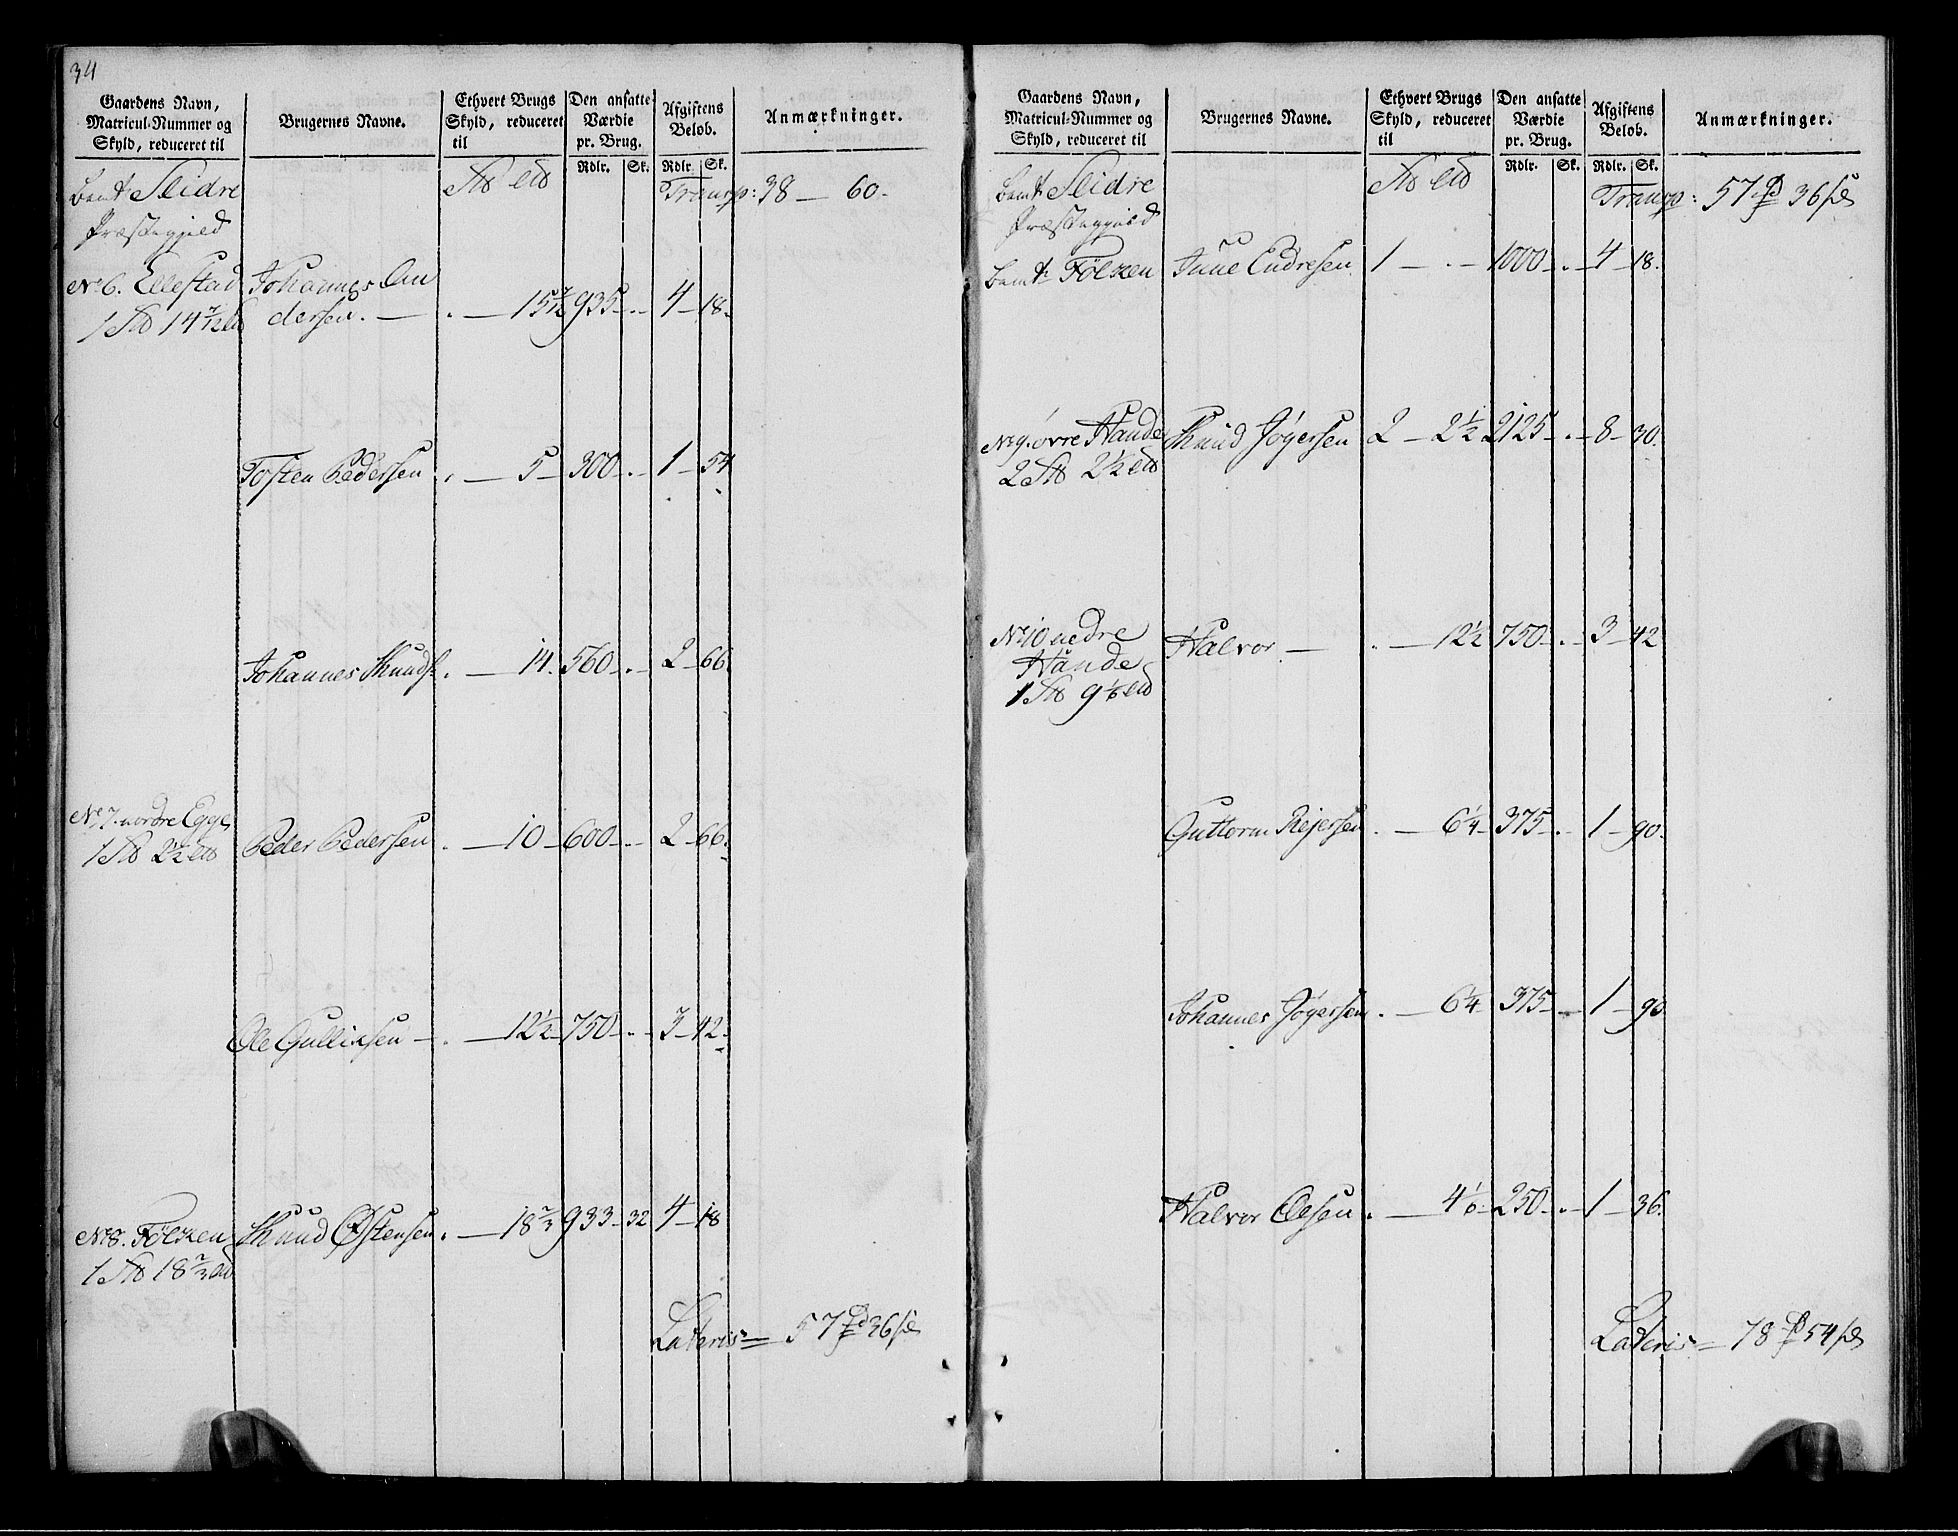 34
Gaardens Navn, Matricul-Nummer og Skyld, reduceret til
Brugernes Navne.
Ethvert Brugs Skyld, reduceret til
Den ansatte Værdie pr. Brug.
Rdlr. Sk.
Afgiftens Beløb.
Rdlr. Sk.
Anmærkninger.
Slidre
Transp: 38 — 60.
Præstegjeld
No 6. Ellestad Johannes An
1 14 7/12 dersen. — . — 15 7/12 935 - . - 4 - 18.
Tosten Pedersen . — 5 - 300 - . - 1 - 54
Johannes Knuds . — 14. 560 - . - 2 - 66
No 7. nordre Egge
1 2 1/2 Peder Pedersen . — 10 - 600 - . - 2 - 66.
Ole Gulliksen — . — 12 1/2 - 750 - . - 3 - 42.
No 8. Knud Østensen . — 18 2/3 933 - 32 4 - 18
1 18 2/3
Lateris = 57 36
Gaardens Navn, Matricul-Nummer og Skyld, reduceret til
Brugernes Navne.
Ethvert Brugs Skyld, reduceret til
Den ansatte Værdie pr. Brug.
Rdlr. Sk.
Afgiftens Beløb.
Rdlr. Sk.
Anmærkninger.
Slidre
Transp: 57 36
Præstegjeld
Endresen 1 — . — 1000 - . - 4 - 18.
No 9. øvre Hande Knud 2 - 2 1/2 2125 - . - 8 - 30.
2 2 1/2
No 10 nedre Halvor — . — 12 1/2 750 - . - 3 - 42
Hande
1 9 1/6
Guttorm . — 6 1/4 - 375 - . - 1 - 90.
Johannes . — 6 1/4 375 - 1 - 90
Halvor Olesen . — 4 1/6 - 250 - . - 1 - 36.
Lateris = 78 54